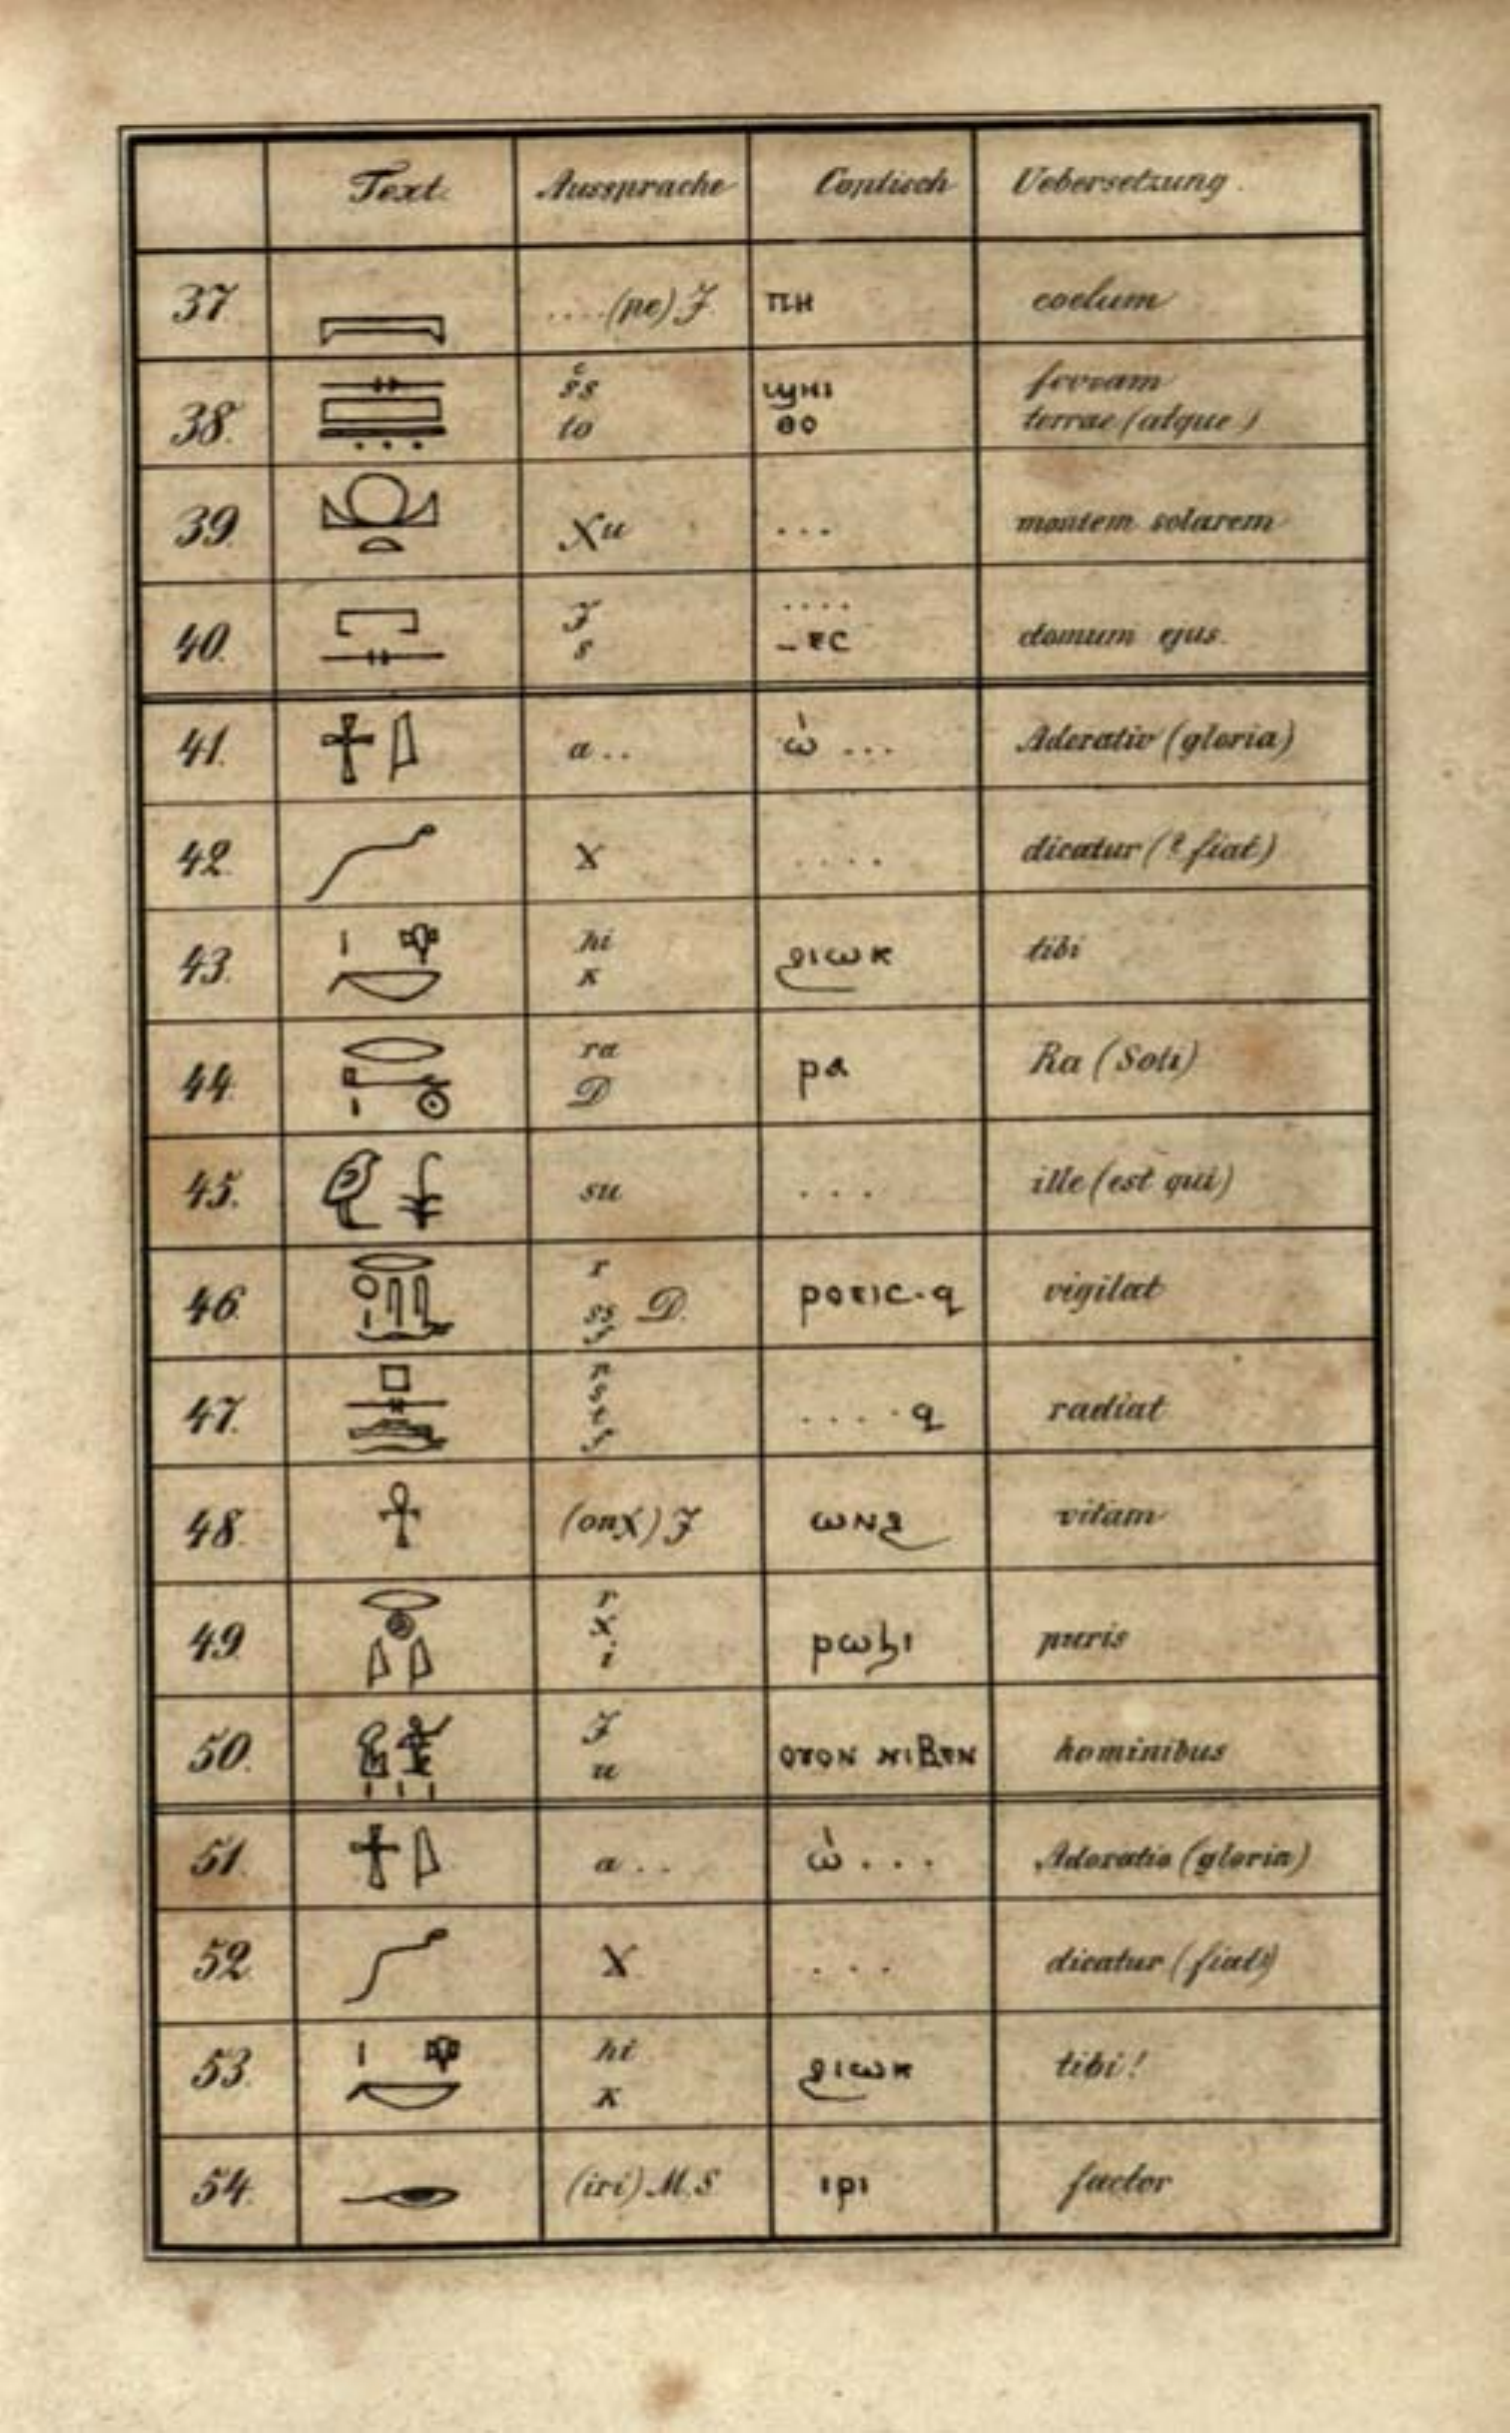 Text. Aussprache Coptisch Uebersetzung.
37. ....(pe) J. ⲡⲏ coelum
38. ss ϣⲏⲓ
to ⲑⲟ terrae (atque)
39. Xu ... montem solarem
40. J ....
s –ⲉⲥ domum ejus.
41. a.. ⲱ̀ ... Adoratio (gloria)
42. X .... dicatur (? fiat)
43. hi ϩⲓⲱⲕ tibi
k
44. ra ⲣⲁ Ra (Soli)
D
45. su ... ille (est qui)
46. r ⲣⲟⲉⲓⲥ-ϥ vigilat
ss D.
f
47. p .... ϥ radiat
s
t
f
48. (onχ) J ⲱⲛϩ vitam
49. r ⲣⲱϧⲓ puris
X
i
50. J ⲟⲩⲟⲛ ⲛⲓⲃⲉⲛ hominibus
u
51. a.. ⲱ̀ ... Adoratio (gloria)
52. X ... dicatur (fiat)
53. hi ϩⲓⲱⲕ tibi!
k
54. (iri) M.S ⲓⲣⲓ factor